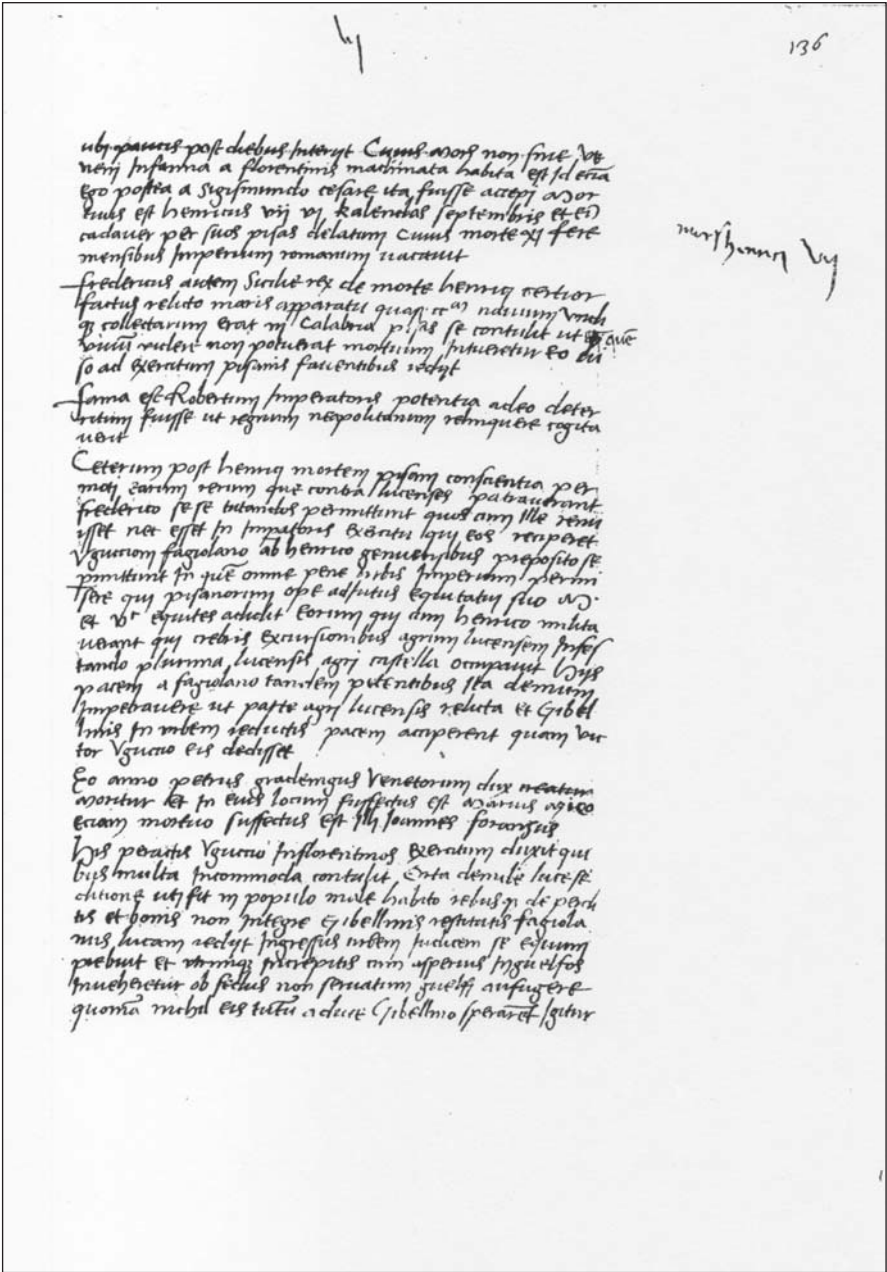 vij
136
ubi paucis post diebus Interijt Cuius mors non sine ve
neni Infamia a florentinis machinata habita est Id eciā
ego postea a Sigismundo cesare ita fuisse accepi Mor
tuus est henricus vii vi kalendas septembris et eiꝰ
cadaver per suos pisas delatum Cuius morte xj fere
mensibus Imperium romanum vacavit
mors henrici vij
fredericus autem Sicilie rex de morte henrici certior
factus relicto maris apparatu quasi ccᵃᵐ navium undi
qꝫ collectarum erat in Calabria pisas se contulit ut quē
vivū videre non potuerat mortuum Intueretur eo vi
so ad exercitum pisanis faventibus redijt
fama est Robertum Imperatoris potentia adeo deter
ritum fuisse ut regnum neapolitanum relinquere cogita
verit
Ceterum post henrici mortem pisani conscientia per
moti earum rerum que contra lucenses patraverant
frederico se se tutandos permittunt quos cum Ille renu
isset nec esset In Impatoris exercitu qui eos reciperet
Vguccioni fagiolano ab henrico genuensibus preposito se
pmittunt In quē omne pene urbis Imperium permi
sere qui pisanorum ope adiutus equitatui suo M.
et vᶜ equites addidit eorum qui cum henrico milita
verant qui crebris excursionibus agrum lucensem Infes
tando plurima lucensis agri castella occupavit hijs
pacem a fagiolano tandem petentibus Ita demum
Impetravere ut parte agri lucensis relicta et Gibel
linis In urbem reductis pacem acciperent quam vic
tor Vguccio eis dedisset
Eo anno petrus gradenigus Venetorum dux creatur
moritur et In eius locum suffectus est Marius
eciam mortuo suffectus est Illi Ioannes
his peractis Vguccio Inflorentinos exercitum duxit qui
bus multa Incommoda contulit Orta demum luce se
ditione uti fit in populo male habito rebus qꝫ de perdi
tis et bonis non integre Gibellinis restitutis fagiola
nus lucam redijt Ingressus urbem Iudicem se equum
prebuit et utrimqꝫ Increpitis cum asperius Inguelfos
Inveheretur ob fedus non servatum guelfi aufugere
quoniā nichil eis tutū a duce Gibellino sperarēt Igitur